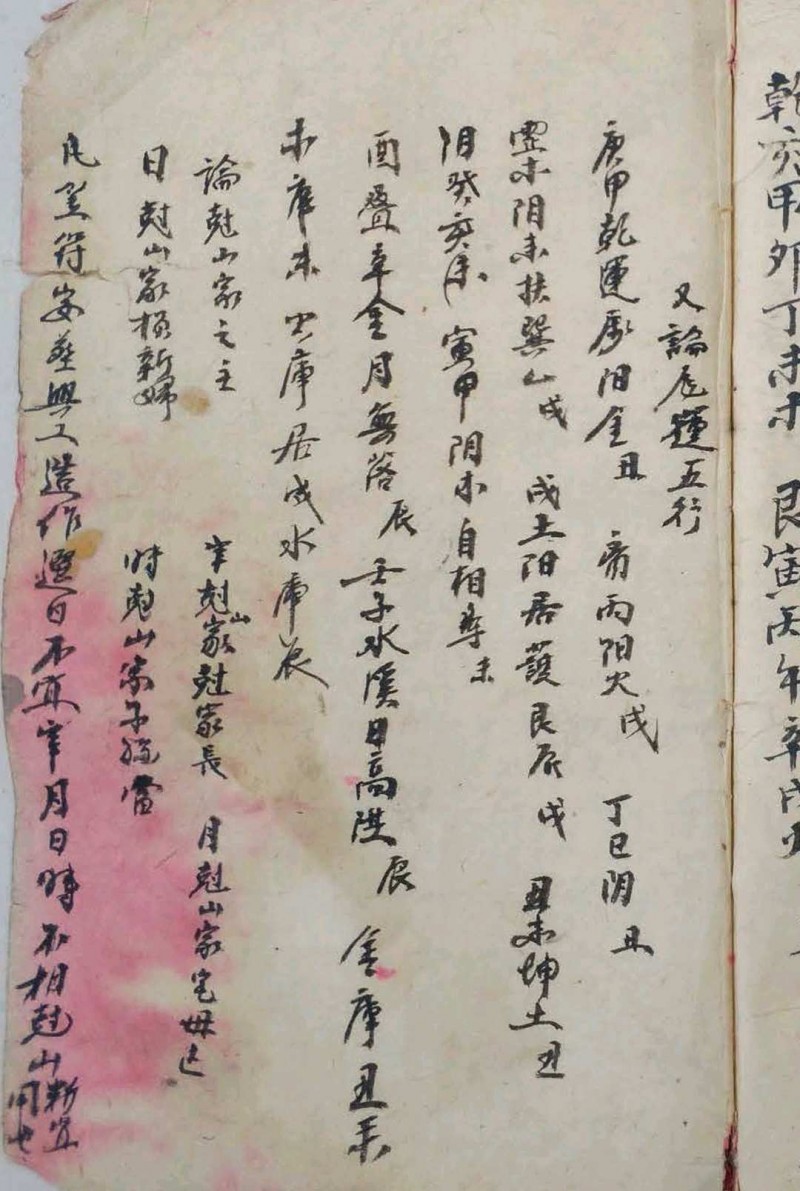 乾亥甲卯丁未木 艮寅丙午辛戌火
又論尨運五行
庚甲乾運属阳金丑 帝丙阳火戌 丁巳阴 丑
阴木扶巽山戌 戌土阳居護艮辰 戌 丑未坤土丑
阴癸亥未 寅甲阴木自相尊未
酉疊辛金月無落辰 壬子水溪日高洪 辰 金庫丑
木庫未 火庫居戌水庫辰
論尅山家之主 年尅山家尅家長 月尅山家宅母
日尅山家極新婦 時尅山家子孫當
凡 符安葬興工造作選日不宜年月日時不相尅山 宜用也